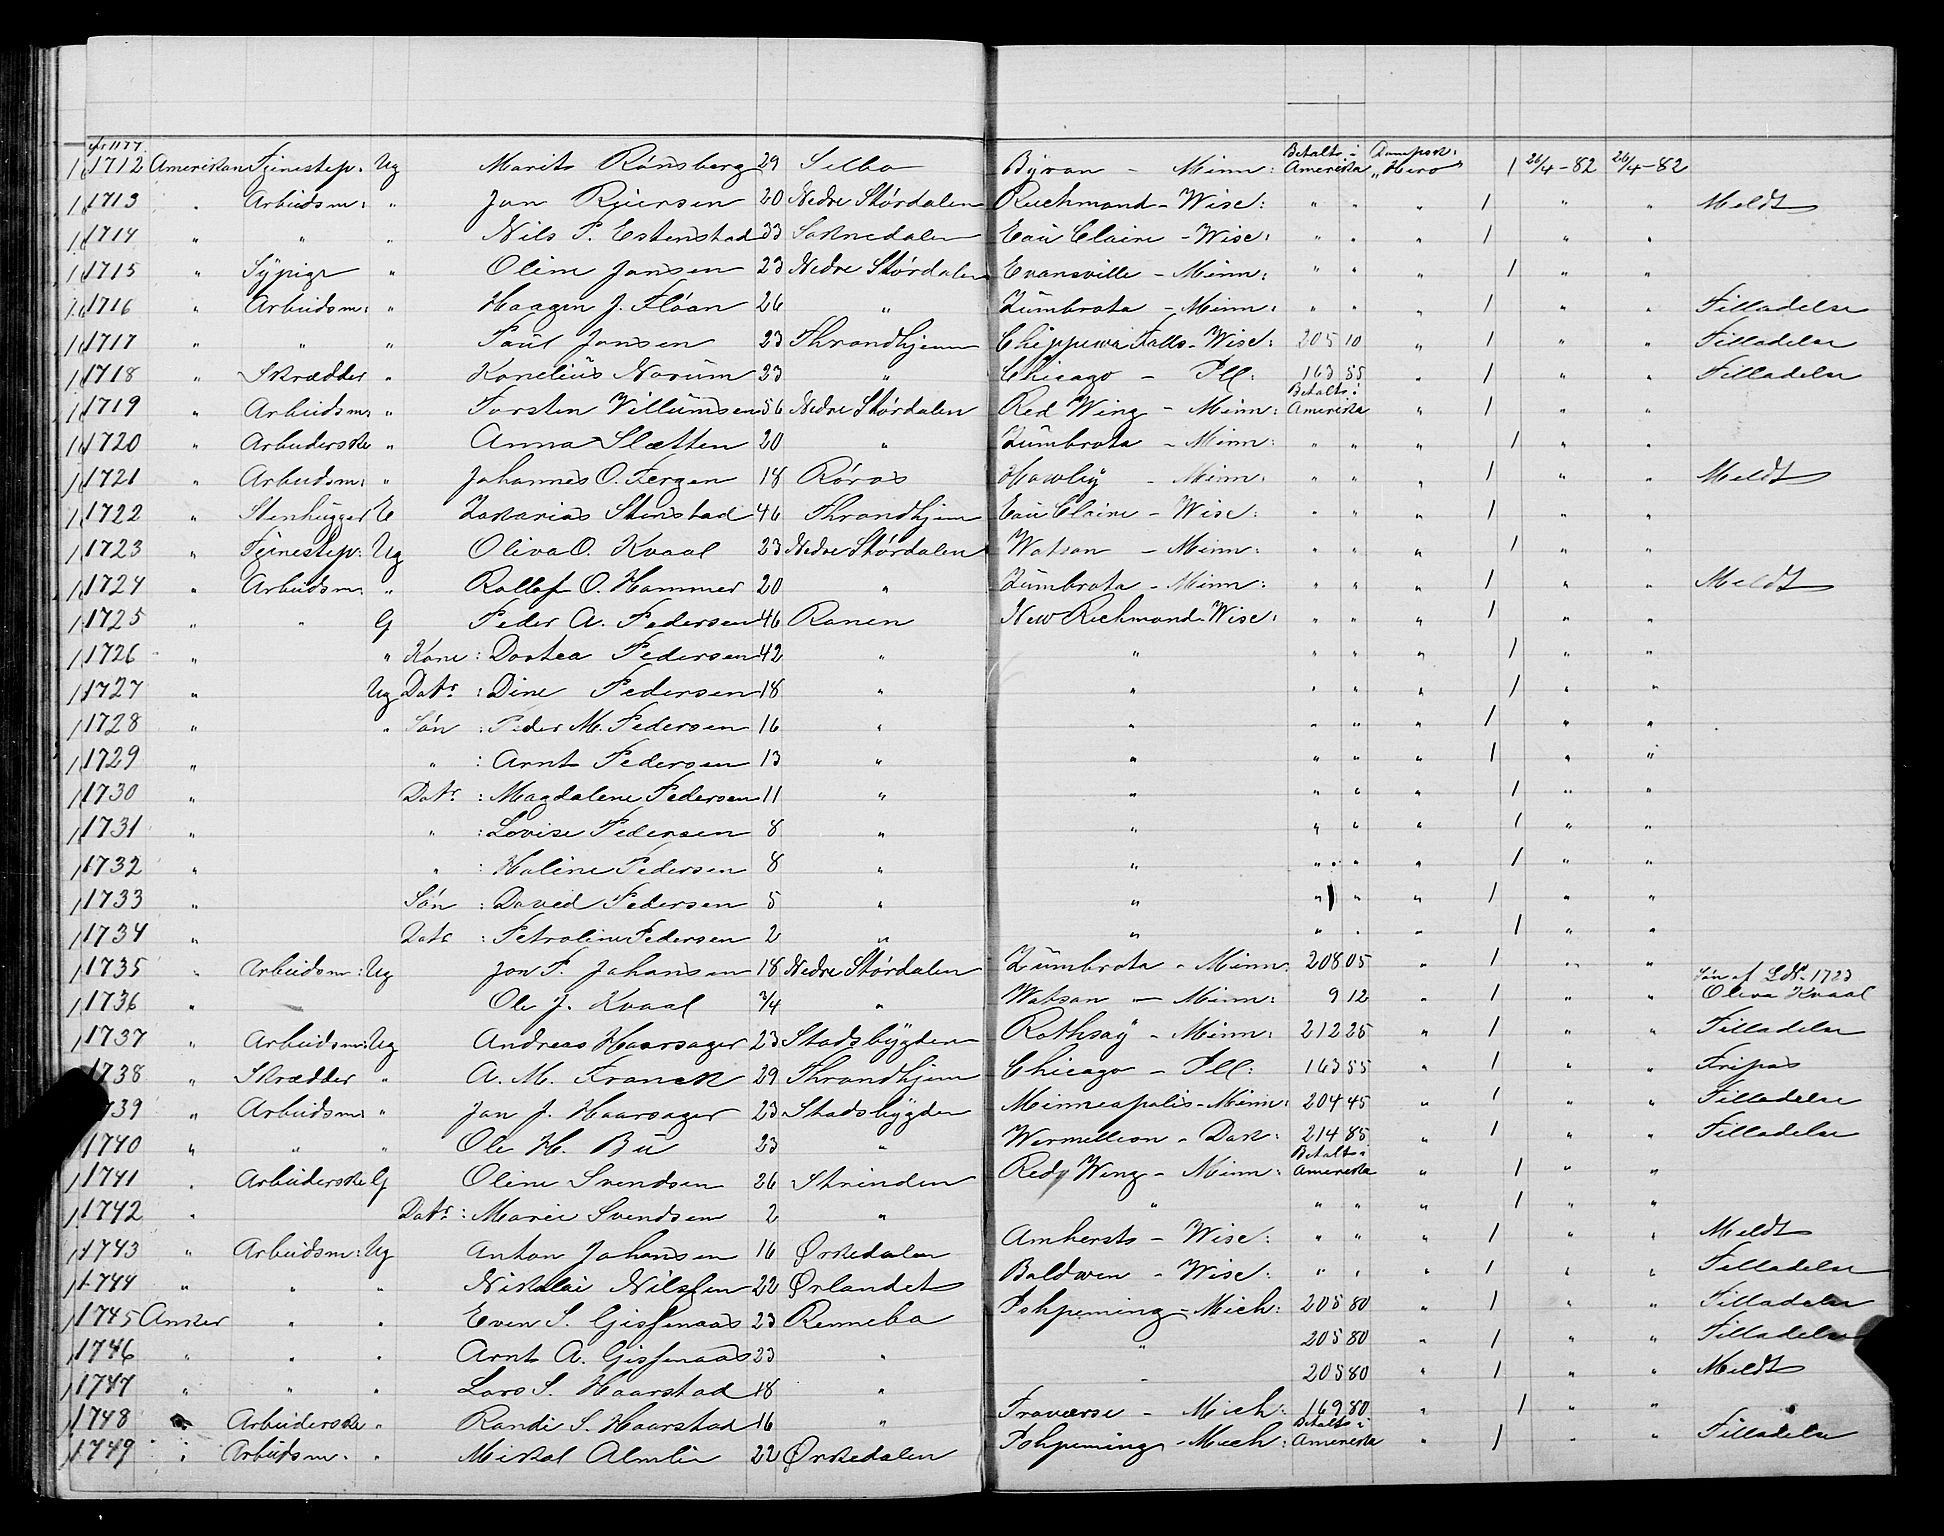 1712 Amerikan Tjenestep: Ug Marit Rönsberg 29 Selbo Byron - Minn: Betalt i Amerika Dampsk: „Hero" 1 26/4-82 26/4-82
1713 " Arbeidsm: " Jon Reiersen 20 Nedre Stördalen Richmond - Wisc: " " " 1 " " Meldt
1714 " " " Nils P. Estenstad 33 Soknedalen Eau Claire - Wisc: " " " 1 " "
1715 " Sypige " Oline Jonsen 23 Nedre Stördalen Evansville - Minn: " " " 1 " "
1716 " Arbeidsm: " Haagen J. Flöan 26 " Zumbrota - Minn: " " " 1 " " Tilladelse
1717 " " " Paul Jonsen 23 Throndhjem Chippewa Falls - Wisc: 205 10 " 1 " " Tilladelse
1718 " Skrædder " Kornelius Norum 23 " Chicago - Ill: 163 55 " 1 " " Tilladelse
1719 " Arbeidsm: " Torsten Villumsen 56 Nedre Stördalen Red Wing - Minn: Betalt i Amerika " 1 " "
1720 " Arbeiderske " Anna Slætten 20 " Zumbrota - Minn: " " " 1 " "
1721 " Arbeidsm: " Johannes O. Fergen 18 Röros Hawley - Minn: " " " 1 " " Meldt
1722 " Stenhugger E Zakarias Stenstad 46 Throndhjem Eau Claire - Wisc: " " " 1 " "
1723 " Tjenestep: Ug Oliva O. Kvaal 23 Nedre Stördalen Watson - Minn: " " " 1 " "
1724 " Arbeidsm: " Rollef O. Hammer 20 " Zumbrota - Minn: " " " 1 " " Meldt
1725 " " G Peder A. Pedersen 46 Ranen New Richmond - Wisc: " " " 1 " "
1726 " " Kone: Dortea Pedersen 42 " " " " " 1 " "
1727 " Ug Datr: Dine Pedersen 18 " " " " " 1 " "
1728 " " Sön: Peder M. Pedersen 16 " " " " " 1 " "
1729 " " : Arnt Pedersen 13 " " " " " 1 " "
1730 " Datr: Magdalene Pedersen 11 " " " " " 1 " "
1731 " " : Lovise Pedersen 8 " " " " " 1 " "
1732 " " : Haline Pedersen 8 " " " " " 1 " "
1733 " Sön: David Pedersen 5 " " " " " 1 " "
1734 " Datr: Petroline Pedersen 2 " " " " " 1 " "
1735 " Arbeidsm: Ug Jon P. Johansen 18 Nedre Stördalen Zumbrota - Minn: 208 05 " 1 " "
1736 " Ole J. Kvaal 3/4 " Watson - Minn: 9 12 " 1 " " Sön af LNo 1723 Oliva Kvaal
1737 " Arbeidsm: Ug Andreas Haarsager 23 Stadsbygden Rothsay - Minn: 212 25 " 1 " " Tilladelse
1738 " Skrædder " A. M. Franck 29 Throndhjem Chicago - Ill: 163 55 " 1 " " Fripas
1739 " Arbeidsm: " Jon J. Haarsager 23 Stadsbygden Minneapolis - Minn: 204 45 " 1 " " Tilladelse
1740 " " " Ole H. Bu 23 " Wermellion - Dak: 214 85 " 1 " " Tilladelse
1741 " Arbeiderske G Oline Svendsen 26 Strinden Red Wing - Minn: Betalt i Amerika " 1 " "
1742 " Datr: Marie Svendsen 2 " " " " " 1 " "
1743 " Arbeidsm: Ug Anton Johansen 16 Ørkedalen Amherst - Wisc: " " " 1 " " Meldt
1744 " " " Nikolai Nilssen 22 Ørlandet Baldwen - Wisc: " " " 1 " " Tilladelse
1745 Anker " " Even S. Gissenaas 23 Rennebo Ishpeming - Mich: 205 80 " 1 " " Tilladelse
1746 " " " Arnt A. Gissenaas 23 " " 205 80 " 1 " " Tilladelse
1747 " " " Lars S. Haarstad 18 " " 205 80 " 1 " " Meldt
1748 " Arbeiderske " Randi S. Haarstad 16 " Traverse - Mich: 169 80 " 1 " "
1749 " Arbeidsm: " Mikal Almlie 22 Ørkedalen Ishpeming - Mich: Betalt i Amerika " 1 " " Tilladelse